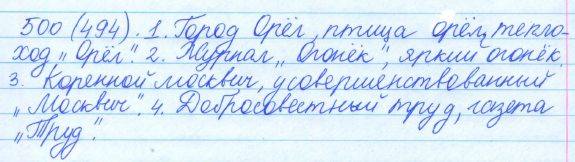 500 (494). 1. Город Орёл, птица орёл, тепло-
ход „Орёл". 2. Журнал „Огонёк", яркий огонёк.
3. Коренной москвич, усовершенствованный
„Москвич". 4. Добросовестный труд, газета
„Труд".